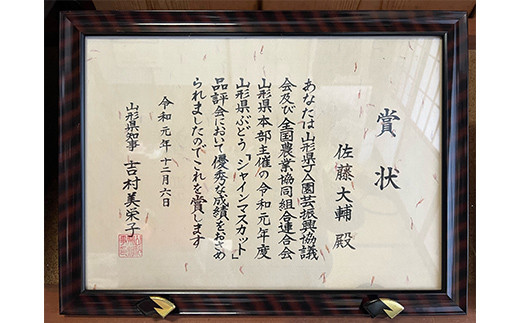 賞状
佐藤大輔 殿
あなたは山形県丁人園芸振興協議
会及び全国農業協同組合連合会
山形県本部主催の令和元年度
山形県ぶどう「シャインマスカット」
品評会において優秀な成績をおさめ
られましたのでこれを賞します
令和元年十二月六日
山形県知事 吉村美栄子